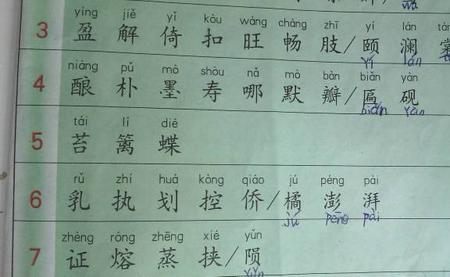 yíng jiě yǐ kòu wàng chàng zhī yí lán
3 盈 解 倚 扣 旺 畅 肢/颐 澜 棠
yí lán
niàng pǔ mò shòu nǎ mò bàn biǎn yàn
4 酿 朴 墨 寿 哪 默 瓣/匾 砚
biǎn yàn
tái lí dié
5 苔 篱 蝶
rǔ zhí huá kòng qiáo jú péng pài
6 乳 执 划 控 侨/橘 澎 湃
jú péng pài
zhèng róng zhēng xié yǔn
7 证 熔 蒸 挟/陨
yǔn